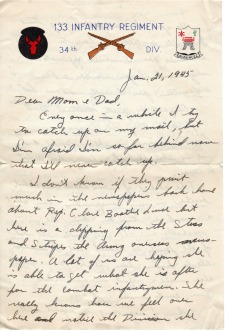 133 INFANTRY REGIMENT
34th DIV.
Jan. 21, 1945
Dear Mom & Dad,
Every once in a while I try
to catch up on my mail, but
I'm afraid I'm so far behind now
that I'll never catch up.
I don't know if they print
much in the newspapers back home
about Rep. Clare Boothe Luce but
here is a clipping from the Stars
and Stripes the Army overseas news-
paper. A lot of us are hoping she
is able to get what she is after
for the combat infantrymen. She
really knows how we feel over
here and notice the Division she